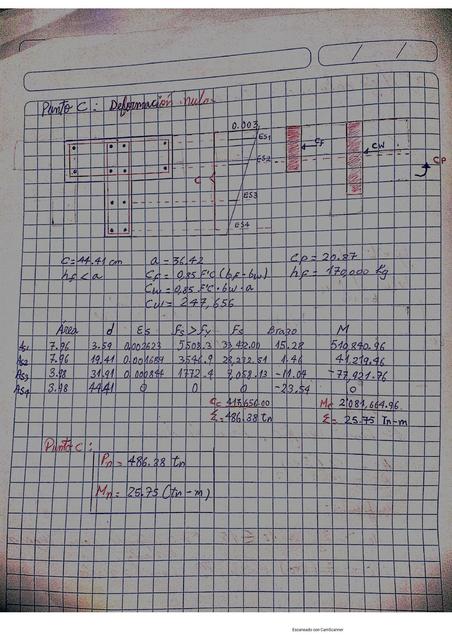 Punto C: Deformación nula
0.003
Es1
Es2
Es3
Es4
C
CF
CW
CP
C = 44.41 cm a = 36.42 CP = 20.87
hf < a CF = 0,85 F'c (bf - bw) hf = 170,000 Kg
Cw = 0,85 F'c · bw · a
Cw = 247,656
Área d Es Fs > Fy Fs Brazo M
As1 7.96 3.59 0.002623 5508.3 33,432.00 15.28 510,840.96
As2 7.96 19.41 0.001689 3546.9 28,232.51 1.46 41,219.46
As3 3.98 31.91 0.000844 1772.4 7,058.13 -11.04 -77,921.76
As4 3.98 44.41 0 0 0 -23.54 0
Cc 417,656.00 Mc 2'081,664.96
Σ = 486.38 Tn Σ = 25.75 Tn-m
Punto C:
Pn = 486.38 tn
Mn = 25.75 (tn-m)
Escaneado con CamScanner